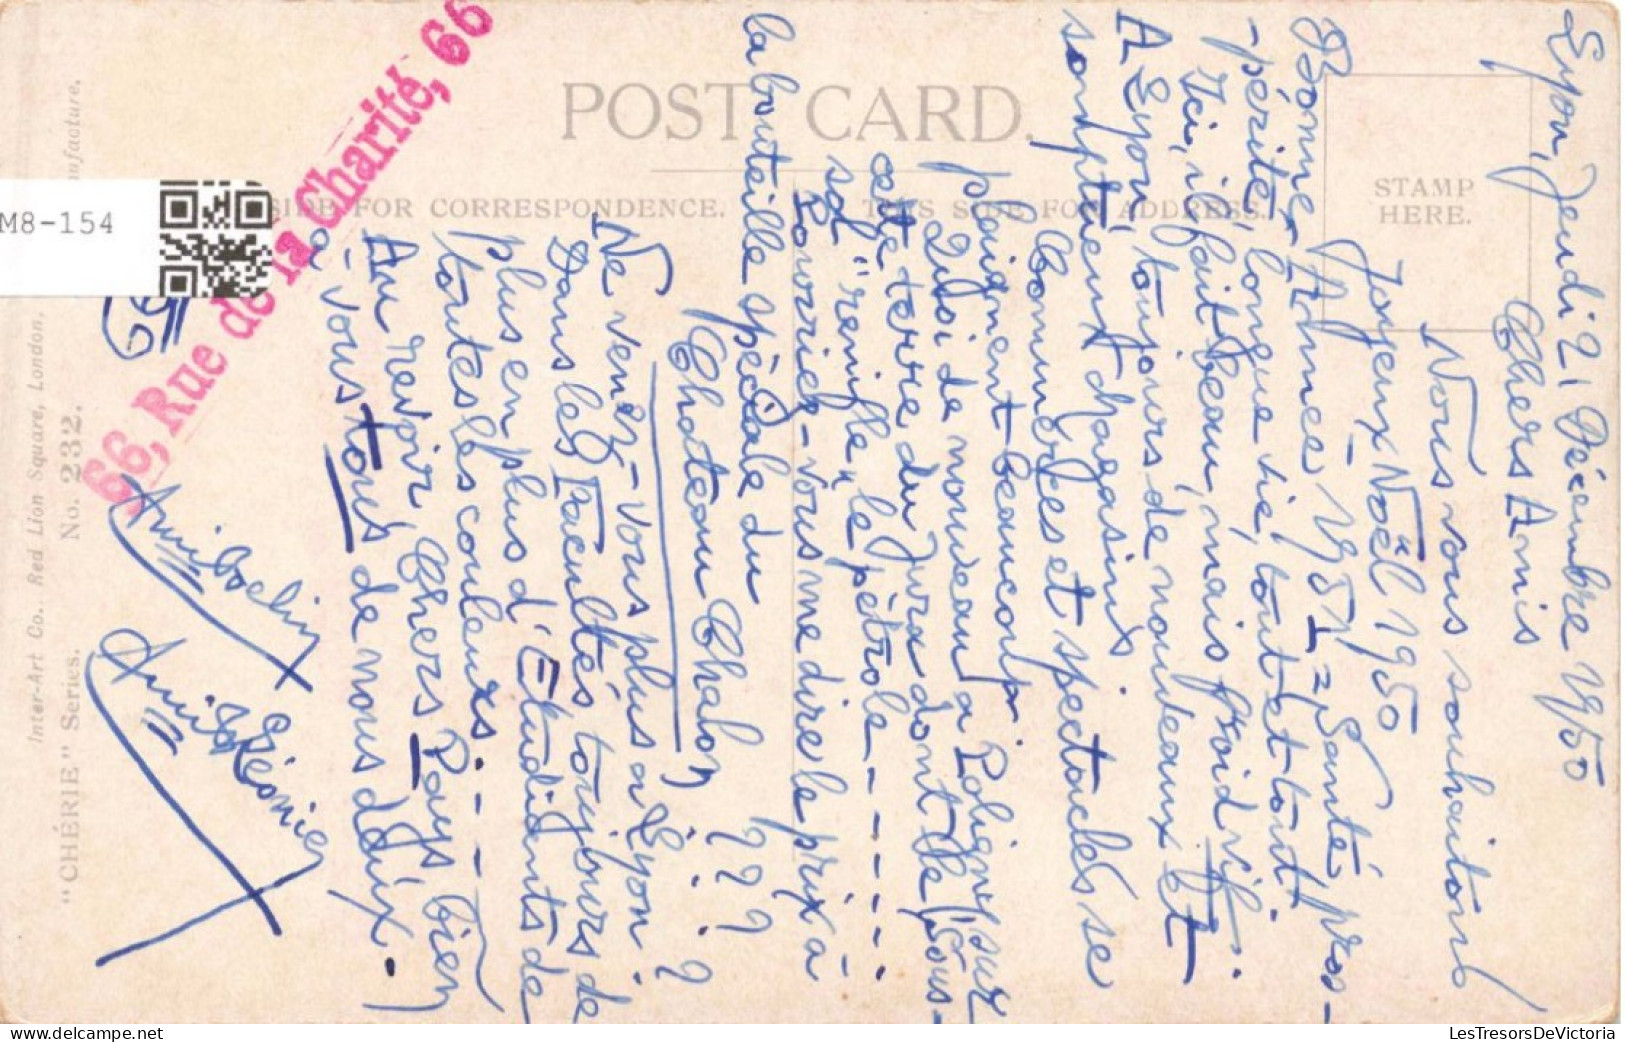 Lyon, Jeudi 21 Décembre 1950
Chers Amis
Nous vous souhaitons
Joyeux Noël 1950
Bonne Année 1951 = Santé, pros-
-périté, longue vie, tout et tout.
Ici, il fait beau, mais froid vif.
A Lyon, toujours de nouveaux et
somptueux magasins
Commerces et spectacles se
plaignent beaucoup
Quoi de nouveau a Poligny sur
cette terre du Jura dont le sous-
sol "renifle" le pétrole - - - - -
Pourriez-vous me dire le prix à
la bouteille spéciale du
Chateau Chalon ? ? ?
Ne venez-vous plus a Lyon ? ?
Dans les Facultés toujours de
plus en plus d'Etudiants de
toutes les couleurs. - - -
Au revoir, Chers Pays, bien
-vous tous de nous deux.
66, Rue de la Charité, 66
POST CARD.
SIDE FOR CORRESPONDENCE.
THIS SIDE FOR ADDRESS.
STAMP
HERE.
"CHÉRIE" Series. No. 232.
Inter-Art Co., Red Lion Square, London.
M8-154
www.delcampe.net
LesTresorsDeVictoria